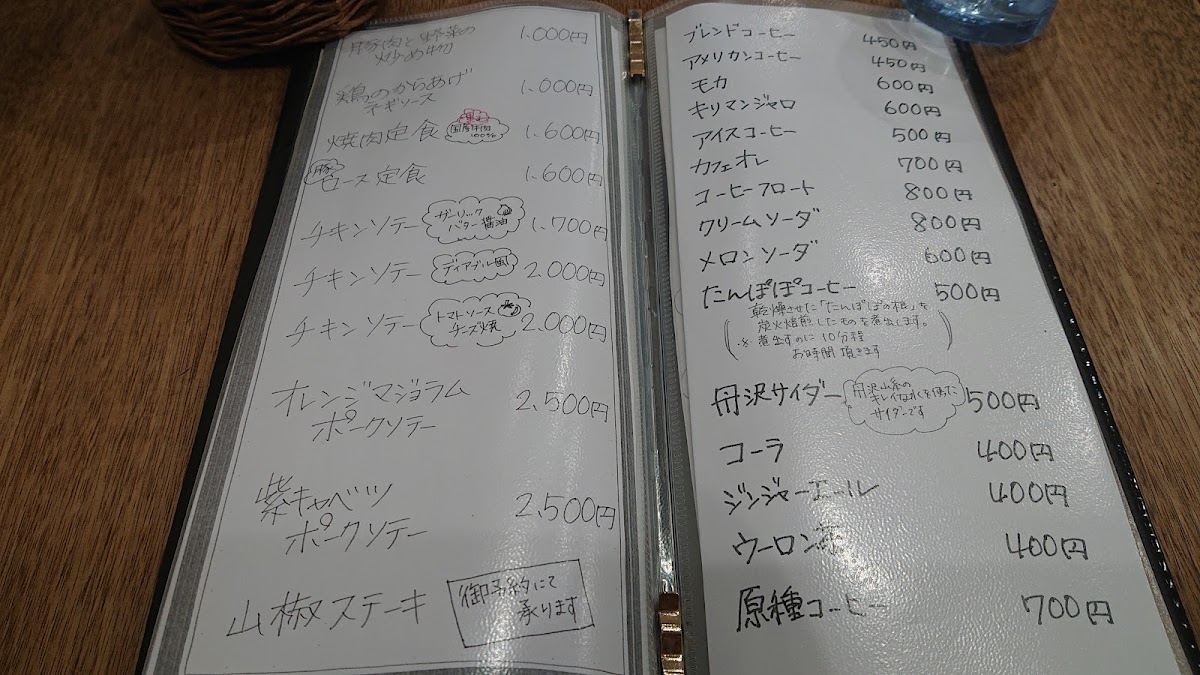 豚肉と野菜の
炒め物 1.000円
鶏のからあげ
ネギソース 1.000円
焼肉定食 国産牛肉 100% 1.600円
豚 ロース定食 1.600円
チキンソテー ガーリック バター醤油 1.700円
チキンソテー ディアブル風 2.000円
チキンソテー トマトソース チーズ焼 2.000円
オレンジマジョラム
ポークソテー 2.500円
紫キャベツ
ポークソテー 2.500円
山椒ステーキ 御予約にて 承ります
ブレンドコーヒー 450円
アメリカンコーヒー 450円
モカ 600円
キリマンジャロ 600円
アイスコーヒー 500円
カフェオレ 700円
コーヒーフロート 800円
クリームソーダ 800円
メロンソーダ 600円
たんぽぽコーヒー 500円
乾燥させた「たんぽぽの根」を
炭火焙煎したものを煮出します。
※煮出すのに10分程
お時間頂きます
丹沢サイダー 丹沢山系の キレイな水を使った サイダーです 500円
コーラ 400円
ジンジャーエール 400円
ウーロン茶 400円
原種コーヒー 700円